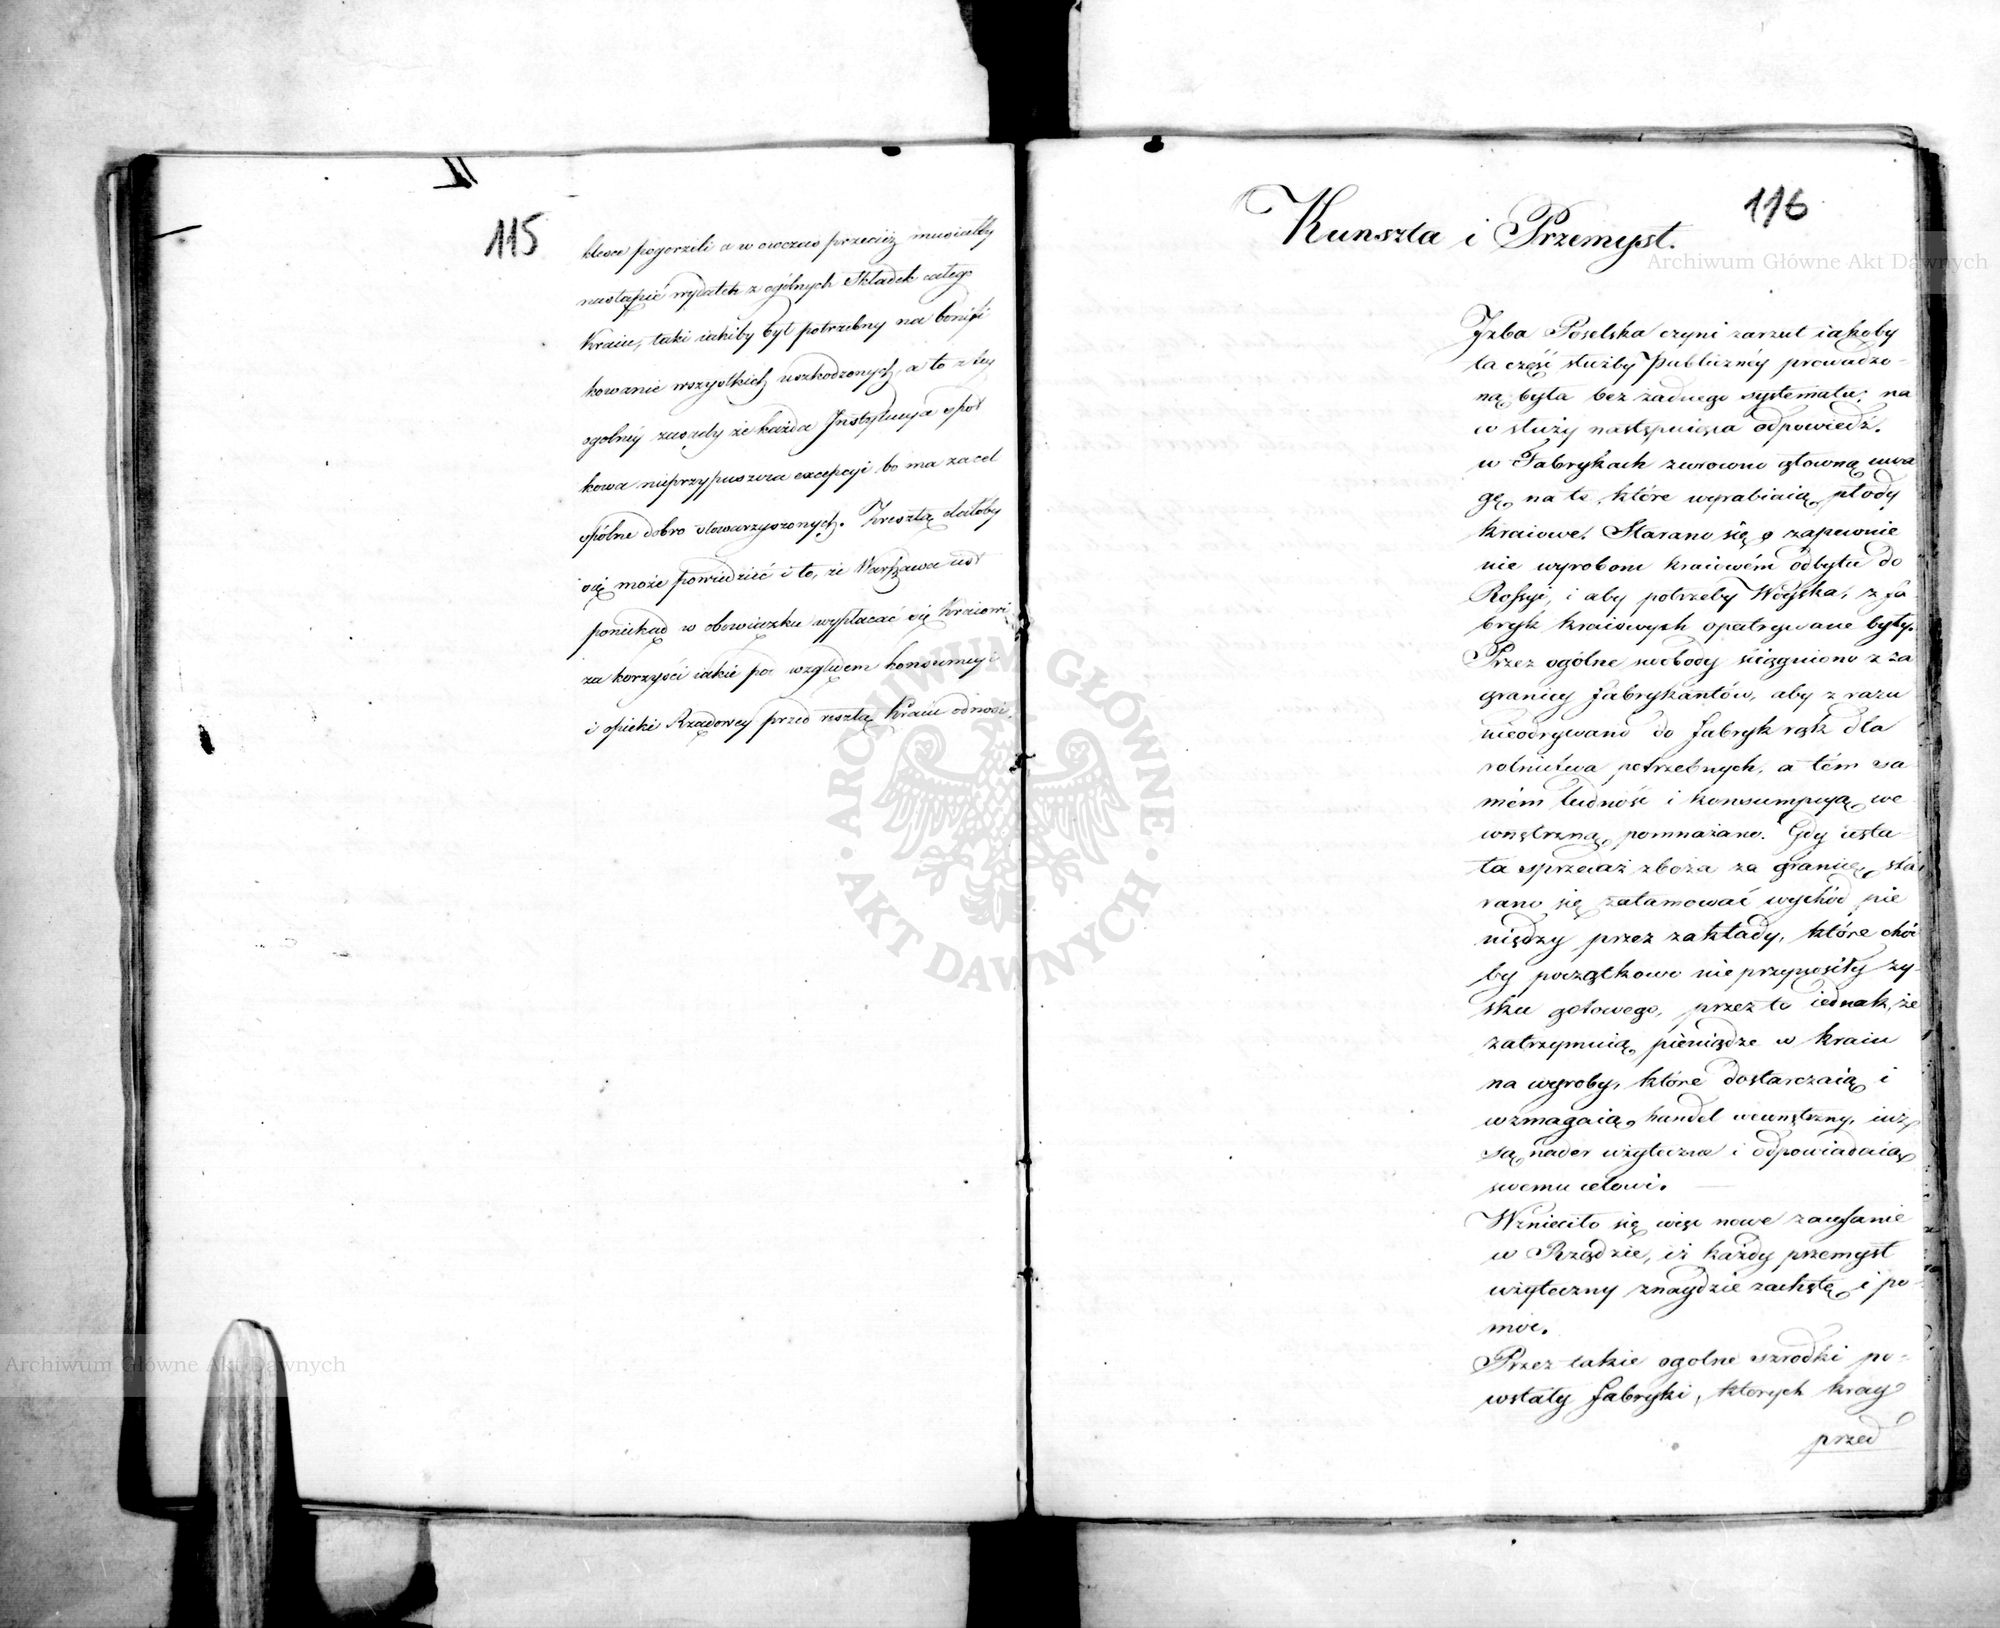 115
klęsce pogorzeli a w owczas przecież musiałby
nastąpić wydatek z ogólnych Składek całego
Kraiu, taki iakiby był potrzebny na bonifi
kowanie wszystkich uszkodzonych, a to z tey
ogolnéy zasady że każda Instytucya spół
kowa nieprzypuszcza excepcyi bo ma za cel
spólne dobro stowarzyszonych. Zresztą dałoby
się może powiedzieć i to, że Warszawa iest
poniekąd w obowiązku wypłacać się Kraiowi
za korzyści iakie pod względem konsumcyi
i opieki Rządowey przed resztą Kraiu odnosi.
116
Kunszta i Przemysł.
Izba Poselska czyni zarzut iakoby
ta część służby publicznéy prowadzo-
ną była bez żadnego systematu; na
w służy następuiąca odpowiedź.
w Fabrykach zwrocono głowną uwa
gę na te, które wyrabiaią płody
kraiowe. Starano się o zapewnie
nie wyrobom kraiowém odbytu do
Rossyi, i aby potrzeby Woyska, z fa-
bryk kraiowych opatrywane były.
Przez ogólne swobody ściągniono z za
granicy fabrykantów, aby z razu
nieodrywano do fabryk rąk dla
rolnictwa potrzebnych, a tém sa
mém ludność i konsumpcyą we
wnętrzną pomnażano. Gdy usta-
ła sprzedaż zboża za granicę, sta
rano się zatamować wychód pie
niędzy przez zakłady, które choć
by początkowo nie przynosiły zy-
sku gotowego, przez to iednak, że
zatrzymuią pieniądze w kraiu
na wyroby, które dostarczaią i
wzmagaią handel wewnętrzny, iuż
są nader użyteczne i odpowiadaią
swemu celowi.
Wznieciło się więc nowe zaufanie
w Rządzie, iż każdy przemysł
użyteczny znaydzie zachętę i po-
moc.
Przez takie ogolne szrodki po-
wstały fabryki, ktorych kray
przed
Archiwum Główne Akt Dawnych
ARCHIWUM GŁÓWNE
AKT DAWNYCH
Archiwum Główne Akt Dawnych